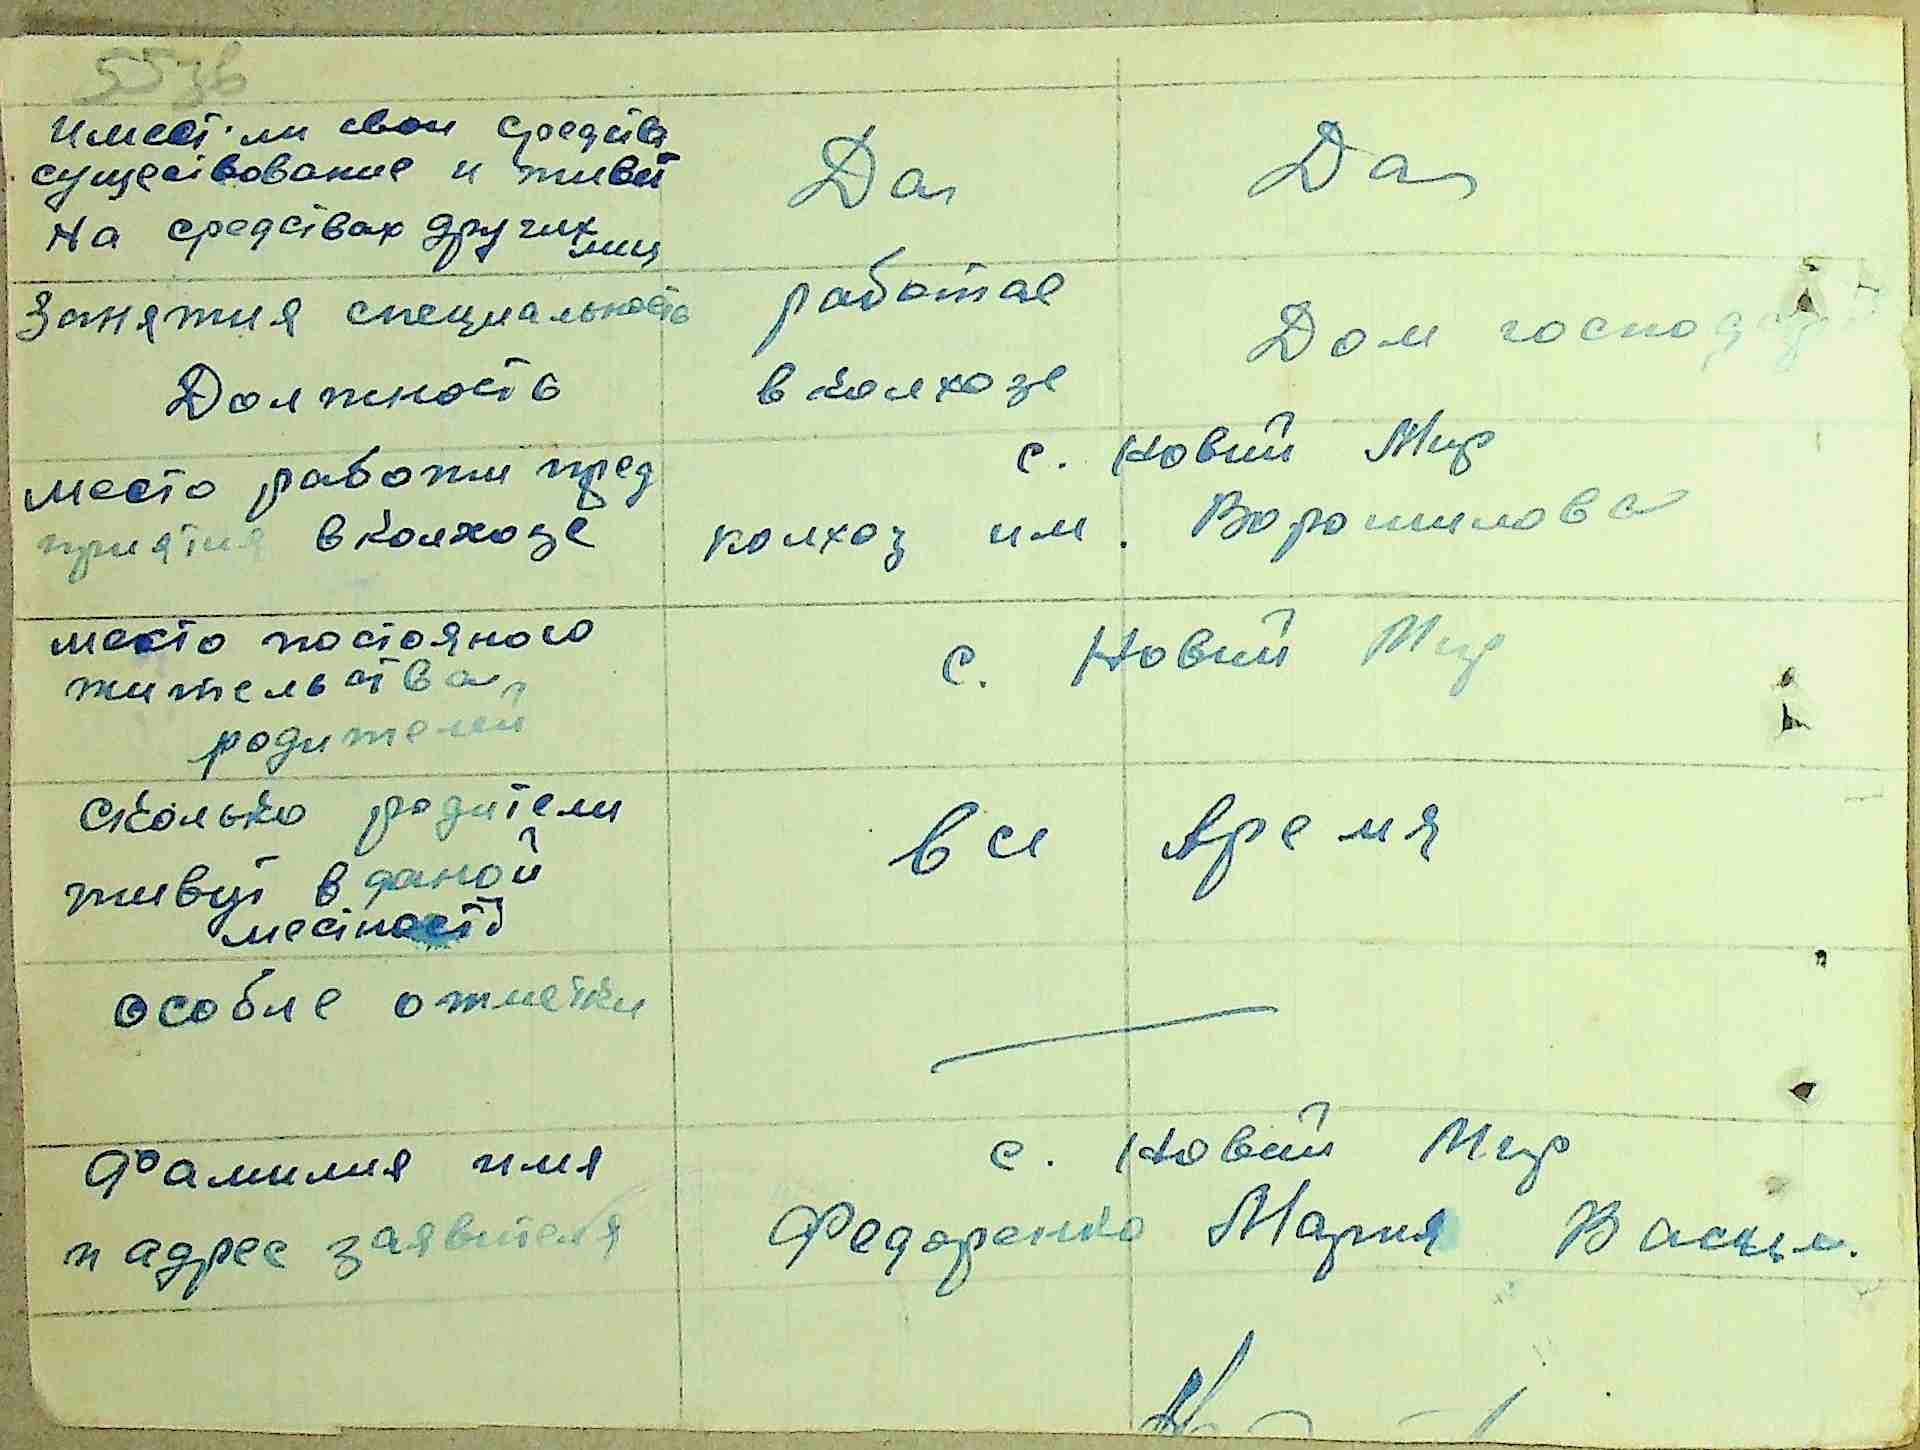 553б
имеет ли свои средства
существование и живет
на средствах других
лиц
Да
Да
Занятия специальность
Должность
работае
в колхозе
Дом господар
место работи пред
приятия в колхозе
с. Новий Мир
колхоз им. Ворошилова
место постояного
жительства
родителей
с. Новий Мир
Сколько родители
живут в даной
местности
все время
особле отметки
Фамилия имя
и адрес заявителя
с. Новий Мир
Федоренко Мария Васил.